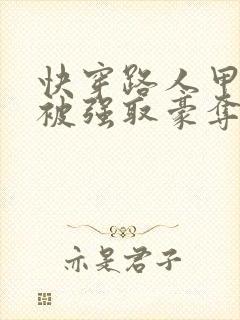 快穿路人甲
被强取豪夺
亦是君子